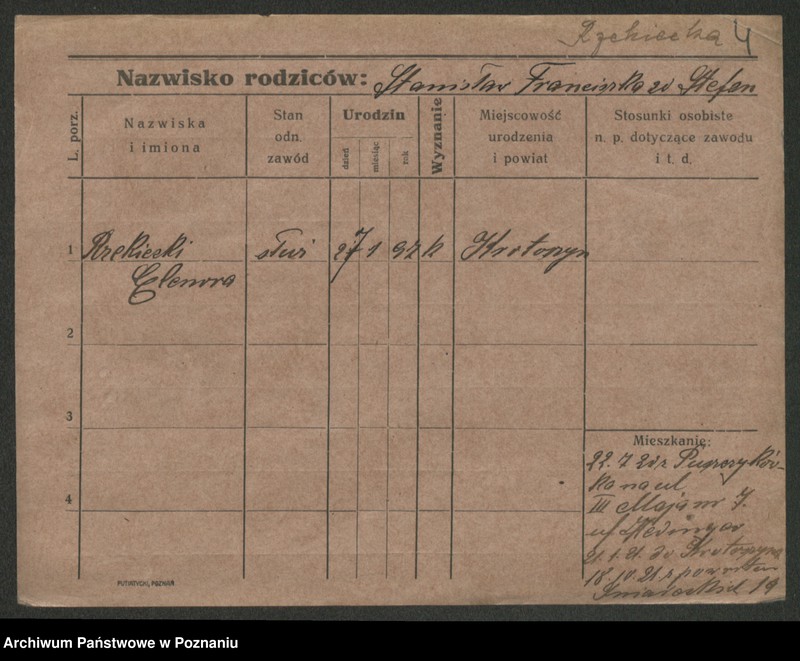 Rzekiecka 4
Nazwisko rodziców: Stanisław Franciszka zd Stefan
L. porz.
Nazwiska
i imiona
Stan
odn.
zawód
Urodzin
dzień
miesiąc
rok
Wyznanie
Miejscowość
urodzenia
i powiat
Stosunki osobiste
n. p. dotyczące zawodu
i t. d.
1 Rzekiecki służ 27 1 92 k Krotoszyn
Elenora
2
3
4
Mieszkanie:
22. 7 20 z
ka na ul
III Maja nr 7.
21. 1. 21. do Krotoszyna
18. 10. 21 z powrotem
19
PUTIATYCKI, POZNAŃ
Archiwum Państwowe w Poznaniu